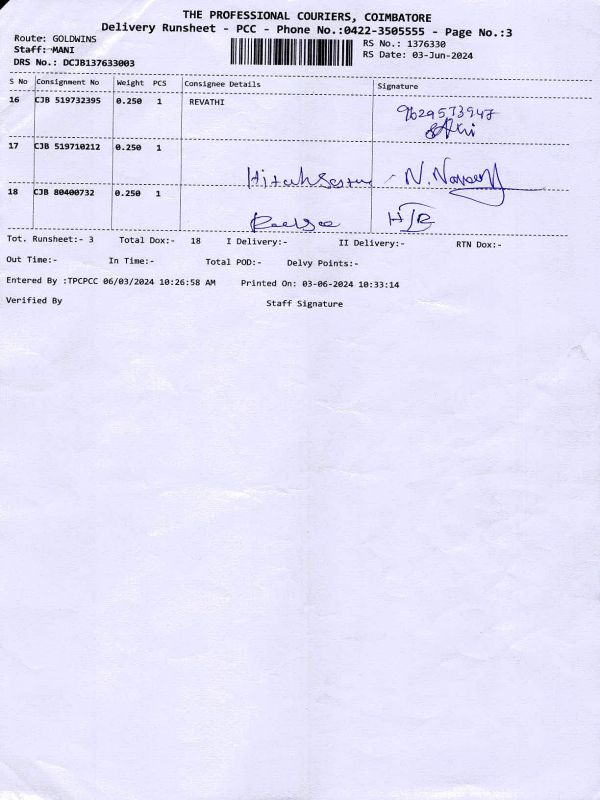 THE PROFESSIONAL COURIERS, COIMBATORE
Delivery Runsheet - PCC - Phone No.:0422-3505555 - Page No.:3
Route: GOLDWINS
RS No.: 1376330
Staff: MANI
RS Date: 03-Jun-2024
DRS No.: DCJB137633003
S No Consignment No Weight PCS Consignee Details Signature
16 CJB 519732395 0.250 1 REVATHI
9629573947
17 CJB 519710212 0.250 1
N.
18 CJB 80400732 0.250 1
Tot. Runsheet:- 3 Total Dox:- 18 I Delivery:- II Delivery:- RTN Dox:-
Out Time:- In Time:- Total POD:- Delvy Points:-
Entered By :TPCPCC 06/03/2024 10:26:58 AM Printed On: 03-06-2024 10:33:14
Verified By Staff Signature